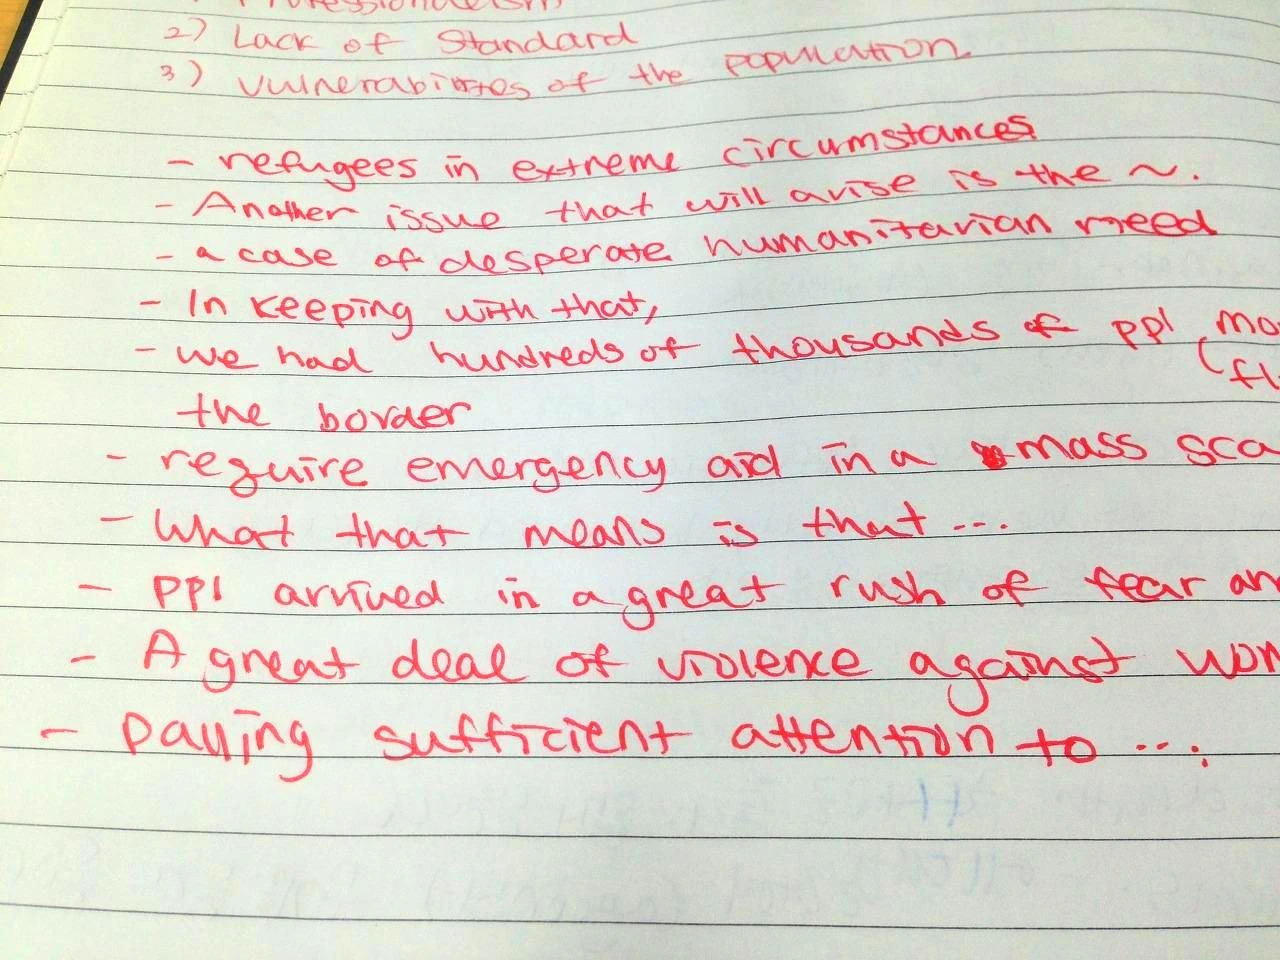 2) Lack of Standard
3) Vulnerabilities of the population.
- refugees in extreme circumstances
- Another issue that will arise is the ~.
- a case of desperate humanitarian need
- In keeping with that,
- We had hundreds of thousands of ppl mo
(fl
the border
- require emergency aid in a mass sca
- What that means is that ...
- ppl arrived in a great rush of fear an
- A great deal of violence against wom
- paying sufficient attention to ...